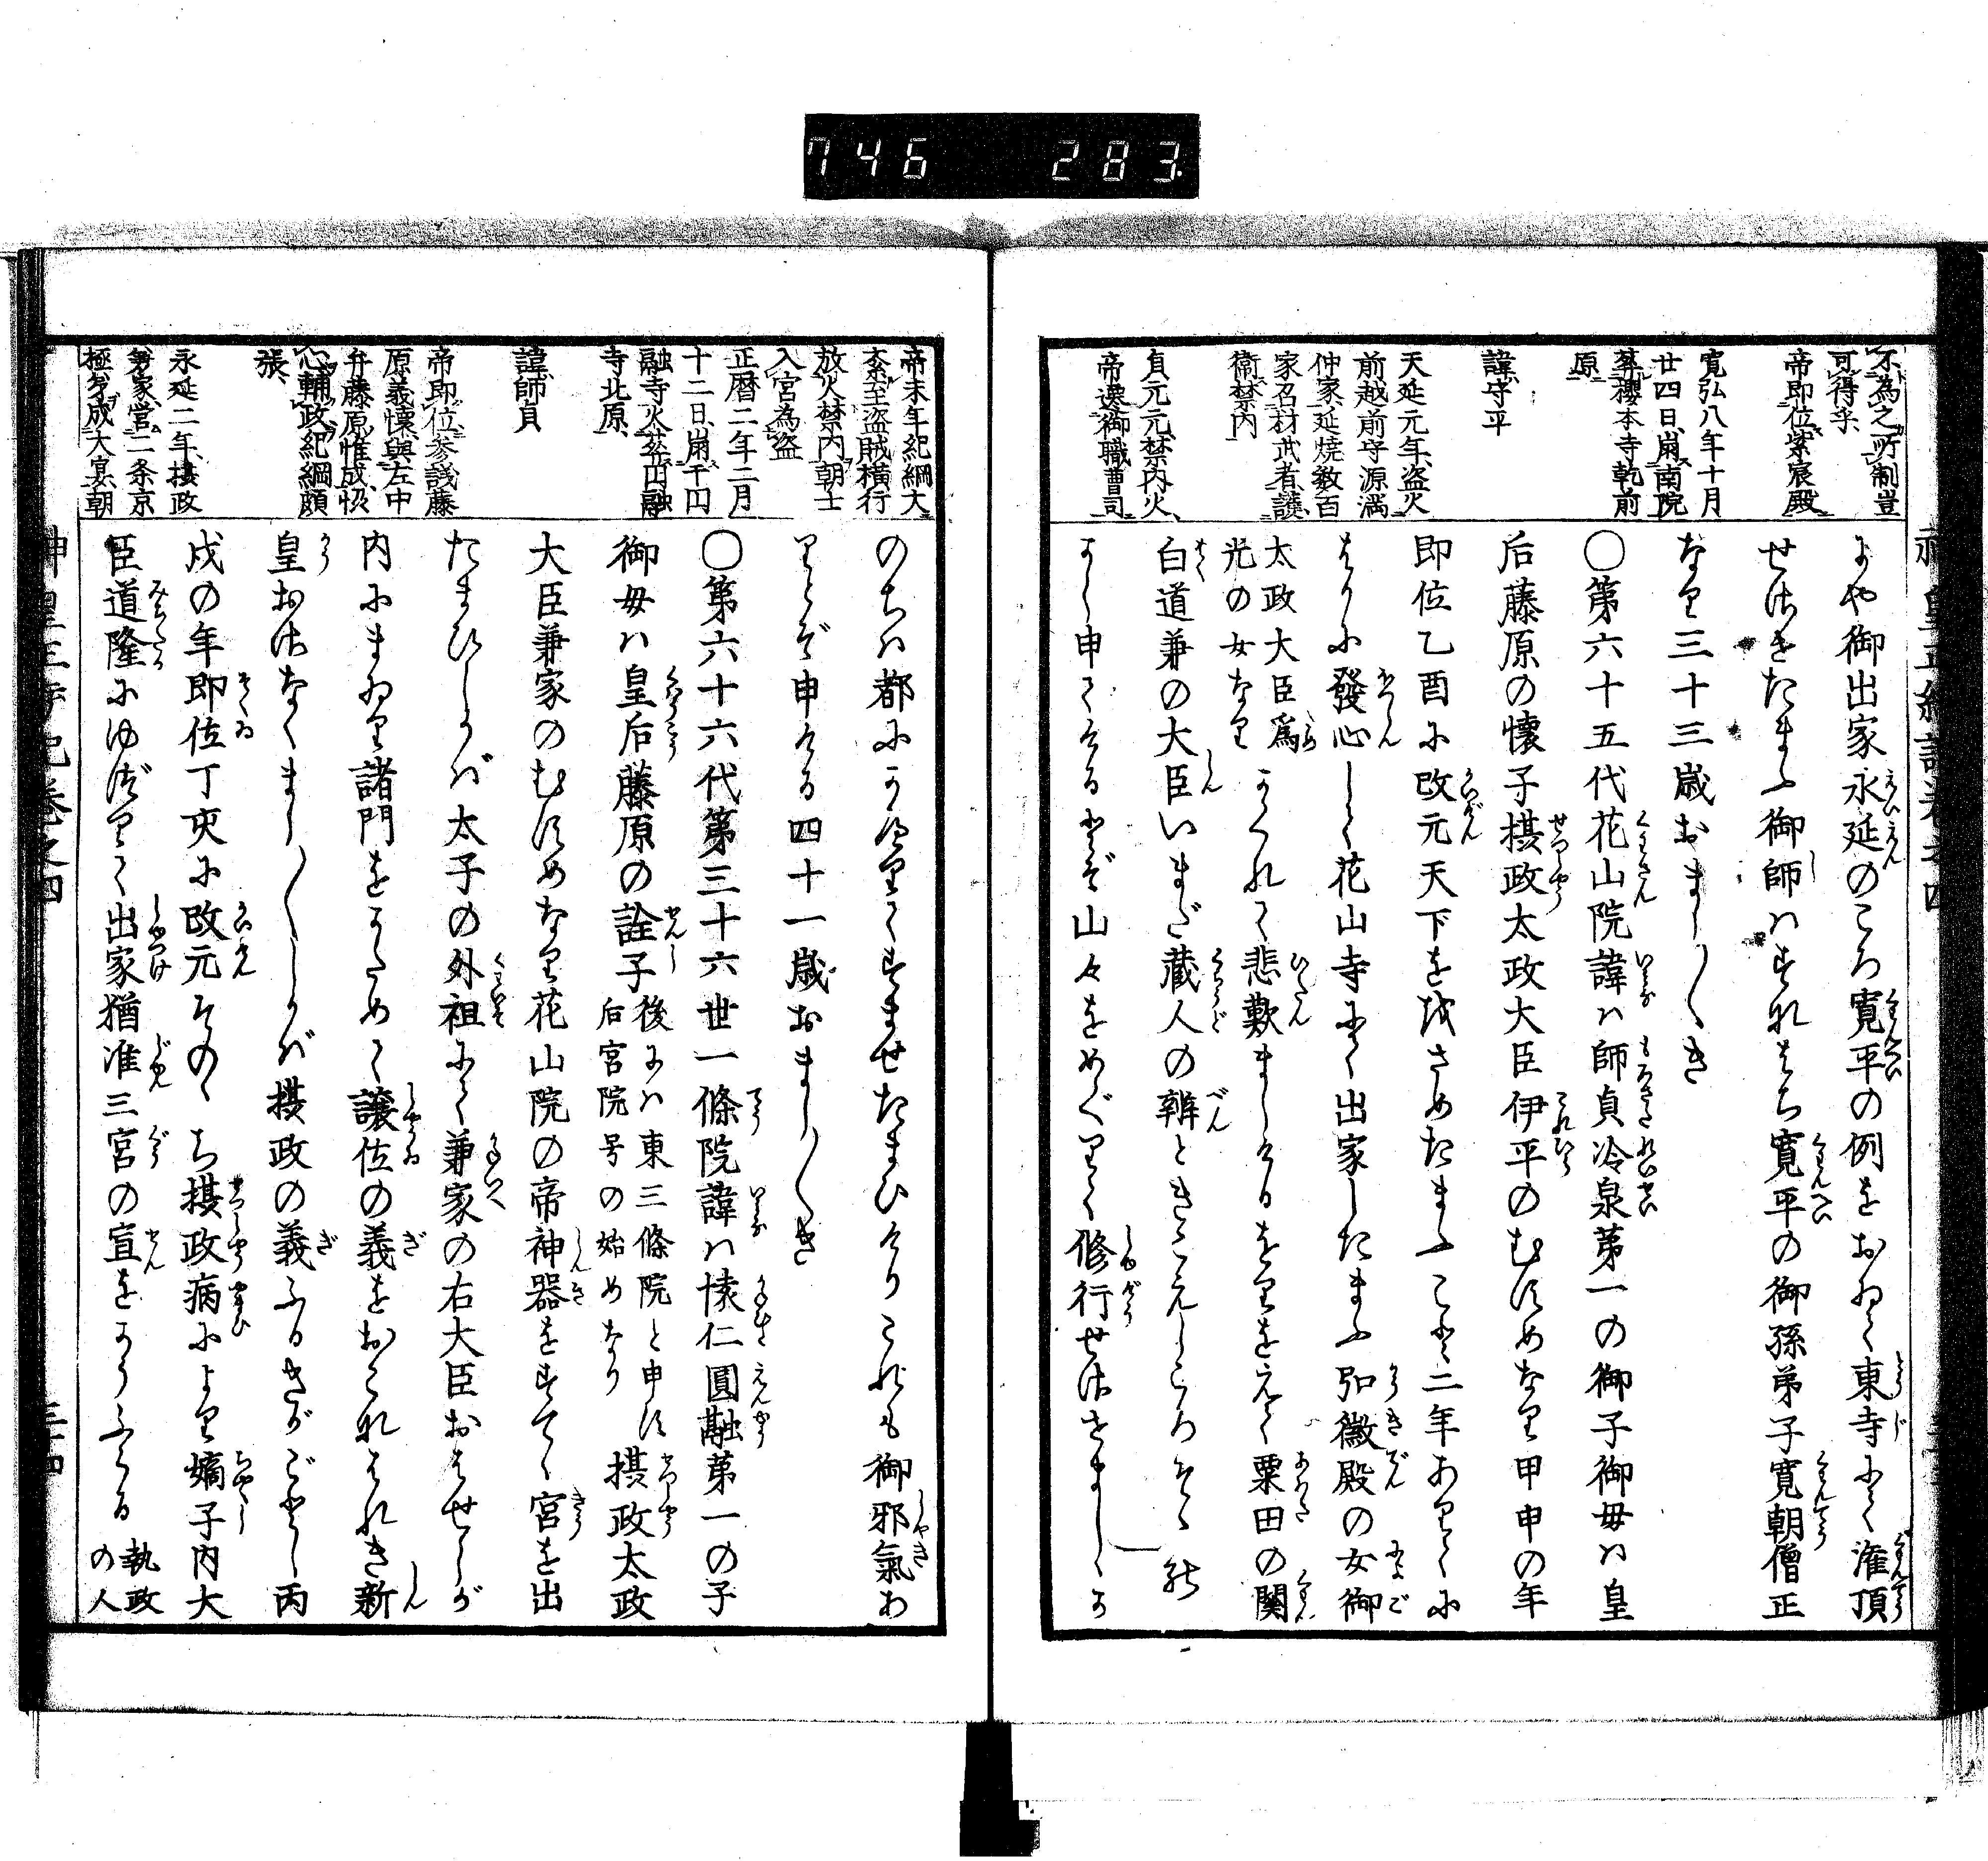 746 283
不為之所制豈
可得乎
帝即位紫宸殿
寛弘八年十月
廿四日崩南院
葬櫻本寺乾前
原
諱守平
天延元年盗火
前越前守源満
仲家延焼数百
家召材武者護
衛禁内
貞元元禁内火
帝遷御職曹司
にや御出家永延のころ寛平の例をおゐて東寺にて潅頂
せさせたまふ御師ハすなはち寛平の御孫弟子寛朝僧正
なり三十三歳おまし〳〵き
〇第六十五代花山院諱ハ師貞冷泉第一の御子御母ハ皇
后藤原の懐子摂政太政大臣伊平のむすめなり甲申の年
即位乙酉に改元天下を治さめたまふこと二年ありてに
はかに發心して花山寺にて出家したまふ弘徽殿の女御
太政大臣爲
光の女なり
かくれて悲歎ましけるをりをえて粟田の関
白道兼の大臣いまだ蔵人の辨ときこえしころそゝの
かし申てけるとぞ山々をめぐりて修行せさせましゝか
帝末年紀綱大
紊至盗賊横行
放火禁内朝士
入宮為盗
正暦二年二月
十二日崩于円
融寺火葬円融
寺北原
諱師貞
帝即位参議藤
原義懐與左中
弁藤原惟成協
心輔政紀綱頗
張
永延二年摂政
兼家営二条京
極第成大宴朝
のちハ都にかへりてすませたまひけりこれも御邪氣あ
りとぞ申ける四十一歳おまし〳〵き
〇第六十六代第三十六世一條院諱ハ懐仁圓融第一の子
御母ハ皇后藤原の詮子
後にハ東三條院と申す
后宮院号の始めなり
摂政太政
大臣兼家のむすめなり花山院の帝神器をすてゝ宮を出
たまひしかば太子の外祖にて兼家の右大臣おはせしが
内にまゐり諸門をかためて譲位の義をおこなはれき新
皇おさなくまし〳〵しかば摂政の義ふるきがごとし丙
戌の年即位丁亥に改元そのゝち摂政病により嫡子内大
臣道隆にゆづりて出家猶准三宮の宣をかうふる
執政
の人
神皇正統記巻之四
三十四